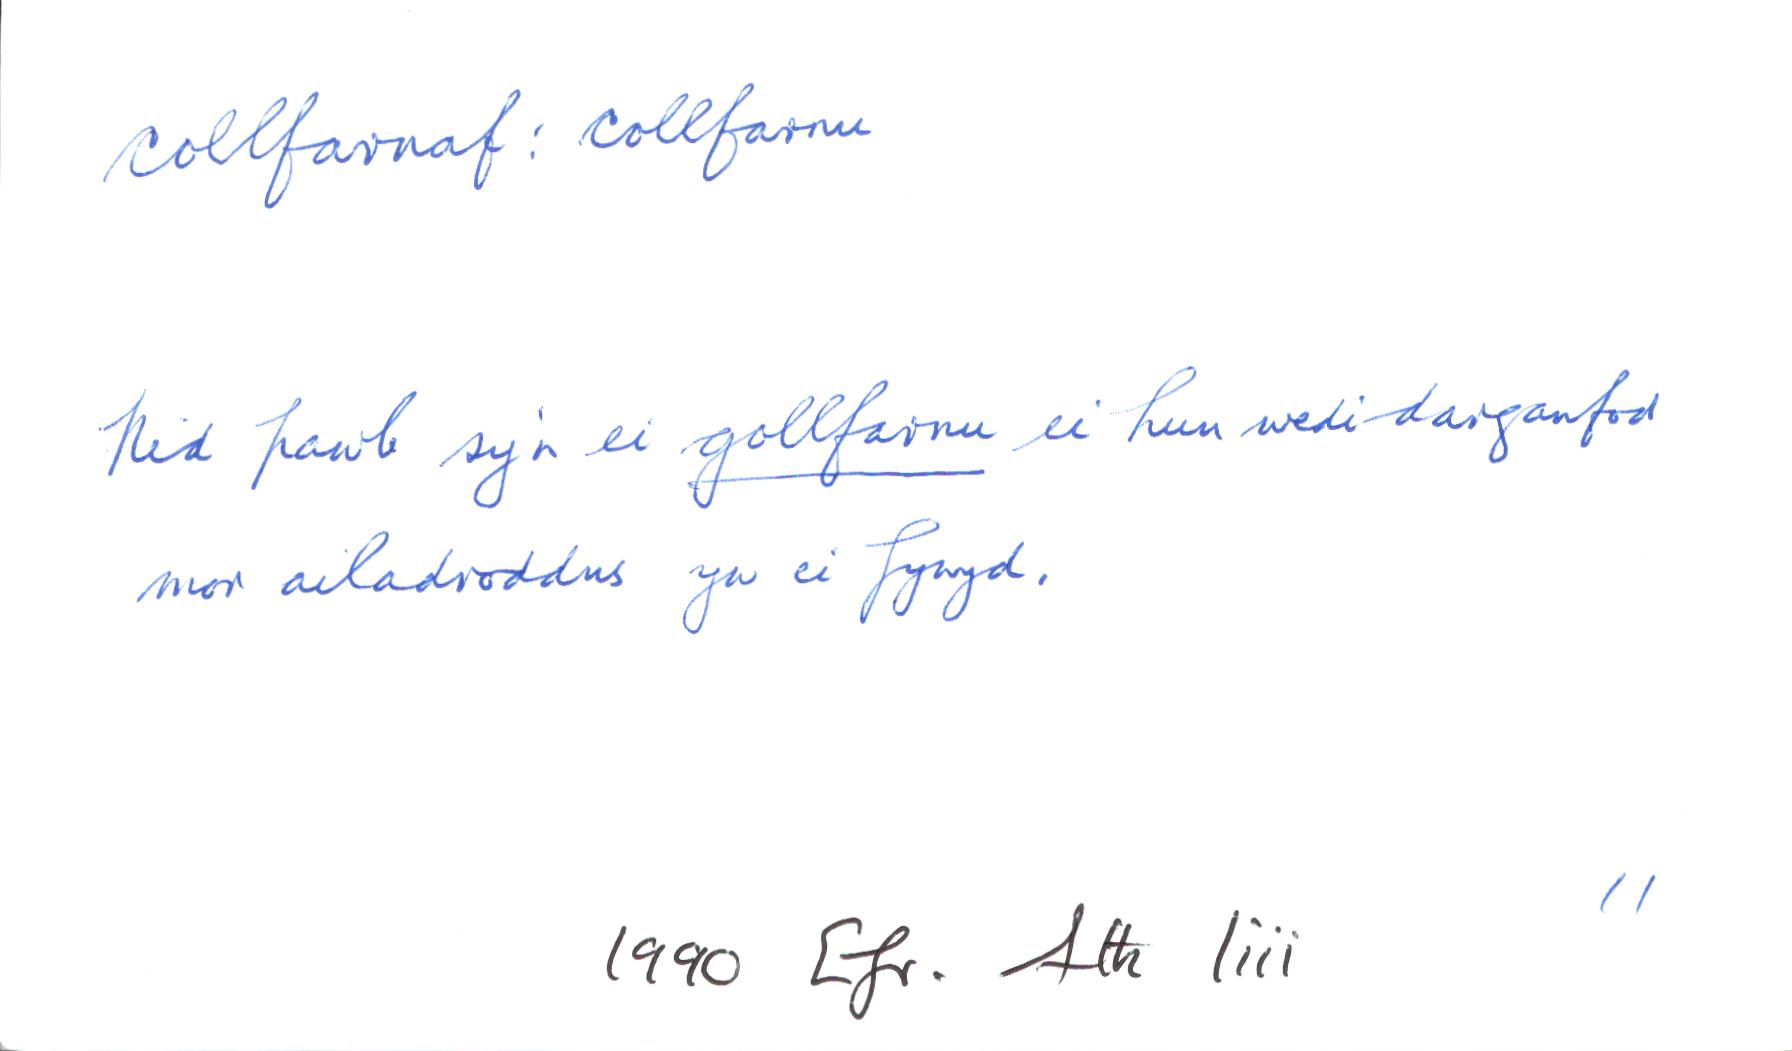 collfarnaf: collfarnu
Nid pawb sy'n ei gollfarnu ei hun wedi darganfod
mor ailadroddus yw ei fywyd.
11
1990 Efr. Ath liii